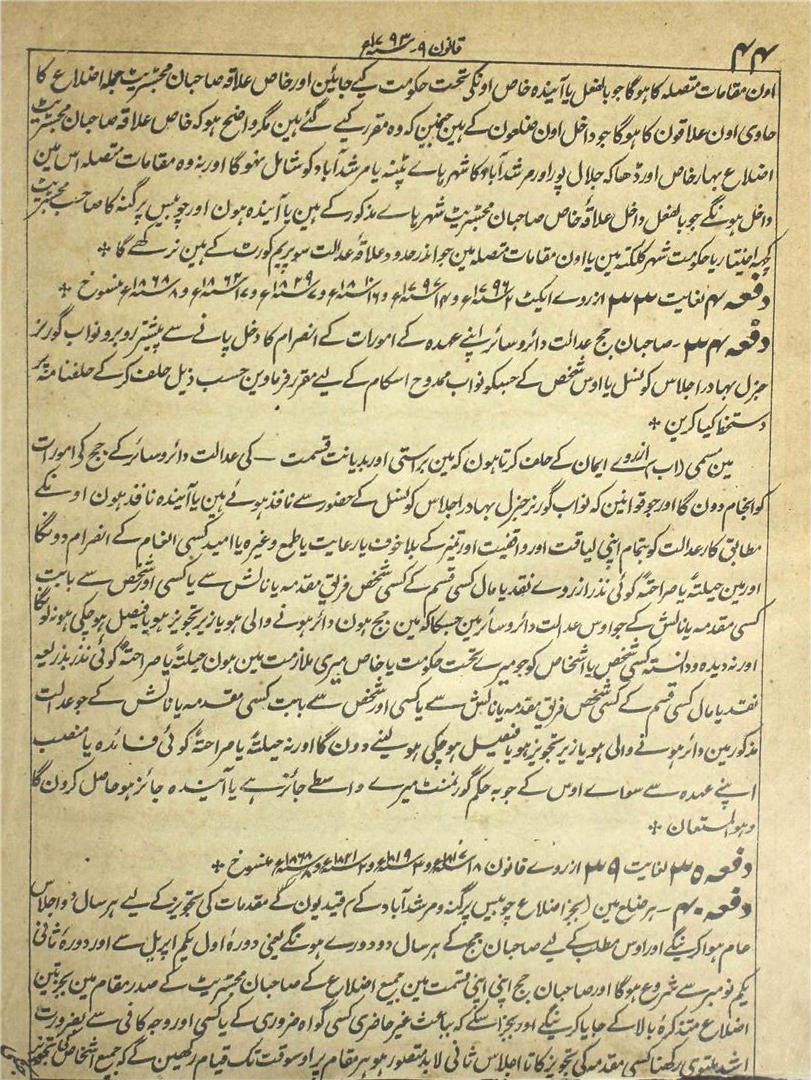 ۴۴
قانون ۹ سنہ ۱۷۹۳ع
اون مقامات متصلہ کا ہوگا جو بالفعل یا آیندہ خاص اونکی تحت حکومت کیے جائین اور خاص علاقہ صاحبان مجسٹریٹ جملہ اضلاع کا
حاوی اون علاقون کا ہوگا جو داخل اون ضلعون کے ہین جنمین کہ وہ مقرر کیے گئے ہین مگر واضح ہو کہ خاص علاقہ صاحبان مجسٹریٹ
اضلاع بہار خاص اور ڈھاکہ جلال پور اور مرشدآباد کا شہر ہاے پٹنہ یا مرشدآباد کو شامل نہوگا اور نہ وہ مقامات متصلہ اس مین
داخل ہونگے جو بالفعل داخل علاقۂ خاص صاحبان مجسٹریٹ شہر ہاے مذکور کے ہین یا آیندہ ہون اور چوبیس پرگنہ کا صاحب مجسٹریٹ
کچھہ اختیار یا حکومت شہر کلکتہ مین یا اون مقامات متصلہ مین جو اندر حدود علاقۂ عدالت سوپریم کورٹ کے ہین نہ رکھے گا *
دفعہ ۴ لغایت ۳۳ ازروے ایکٹ ۲ سنہ ۱۷۹۶ع و ۴ سنہ ۱۷۹۷ع و ۱۶ سنہ ۱۸۱۰ع و ۷ سنہ ۱۸۲۹ع و ۱۷ سنہ ۱۸۶۲ع و ۸ سنہ ۱۸۶۸ع منسوخ *
دفعہ ۳۴ - صاحبان جج عدالت دائر و سائر اپنے عہدہ کے امورات کے انصرام کا دخل پانے سے پیشتر روبرو نواب گورنر
جنرل بہادر اجلاس کونسل یا اوس شخص کے جسکو نواب ممدوح اسکام کے لیے مقرر فرماوین حسب ذیل حلف کرکے حلفنامہ پر
دستخط کیا کرین *
مین مسمی (اب) ازروے ایمان کے حلف کرتا ہون کہ مین براستی اور بدیانت قسمت — کی عدالت دائر و سائر کے جج کی امورات
کو انجام دون گا اور جو قوانین کہ نواب گورنر جنرل بہادر اجلاس کونسل کے حضور سے نافذ ہوئے ہین یا آیندہ نافذ ہون اونکے
مطابق کار عدالت کو بتمام اپنی لیاقت اور واقفیت اور تمیز کے بلا خوف یا رعایت یا طمع وغیرہ یا امید کسی انعام کے انصرام دونگا
اور مین حیلتہً یا صراحتہً کوئی نذر ازروے نقد یا مال کسی قسم کے کسی شخص فریق مقدمہ یا نالش سے یا کسی اور شخص سے بابت
کسی مقدمہ یا نالش کے جو اوس عدالت دائر و سائر مین جسکا کہ مین جج ہون دائر ہونے والی ہو یا زیر تجویز ہو یا فیصل ہو چکی ہو نہ لونگا
اور نہ دیدہ و دانستہ کسی شخص یا اشخاص کو جو میرے تحت حکومت یا خاص میری ملازمت مین ہون حیلتہً یا صراحتہً کوئی نذر بذریعہ
نقد یا مال کسی قسم کے کسی شخص فریق مقدمہ یا نالش سے یا کسی اور شخص سے بابت کسی مقدمہ یا نالش کے جو عدالت
مذکور مین دائر ہونے والی ہو یا زیر تجویز ہو یا فیصل ہو چکی ہو لینے دون گا اور نہ حیلتہً یا صراحتہً کوئی فائدہ یا منصب
اپنے عہدہ سے سواے اوس کے جو بہ حکم گورنمنٹ میرے واسطے جائز ہے یا آیندہ جائز ہو حاصل کرون گا
وہو المستعان *
دفعہ ۳۵ لغایت ۳۹ ازروے قانون ۱۸ سنہ ۱۸۱۷ع و ۳ سنہ ۱۸۱۹ع و ۲ سنہ ۱۸۲۱ع و ۸ سنہ ۱۸۶۸ع منسوخ *
دفعہ ۴۰ - ہر ضلع مین (بجز اضلاع چوبیس پرگنہ و مرشدآباد کے) قیدیون کے مقدمات کی تجویز کے لیے ہر سال دو اجلاس
عام ہوا کرینگے اور اوس مطلب کے لیے صاحبان جج کے ہر سال دو دورے ہونگے یعنی دورۂ اول یکم اپریل سے اور دورۂ ثانی
یکم نومبر سے شروع ہوگا اور صاحبان جج اپنی اپنی قسمت مین جمیع اضلاع کے صاحبان مجسٹریٹ کے صدر مقام مین بجز تین
اضلاع متذکرۂ بالا کے جایا کرینگے اور بجز اسکے کہ بباعث غیر حاضری کسی گواہ ضروری کے یا کسی اور وجہ کافی سے بضرورت
اشد ملتوی رکھنا کسی مقدمہ کی تجویز کا تا اجلاس ثانی لابد متصور ہو ہر مقام پر اوسوقت تک قیام رکھین گے کہ جمیع اشخاص کی تجویز